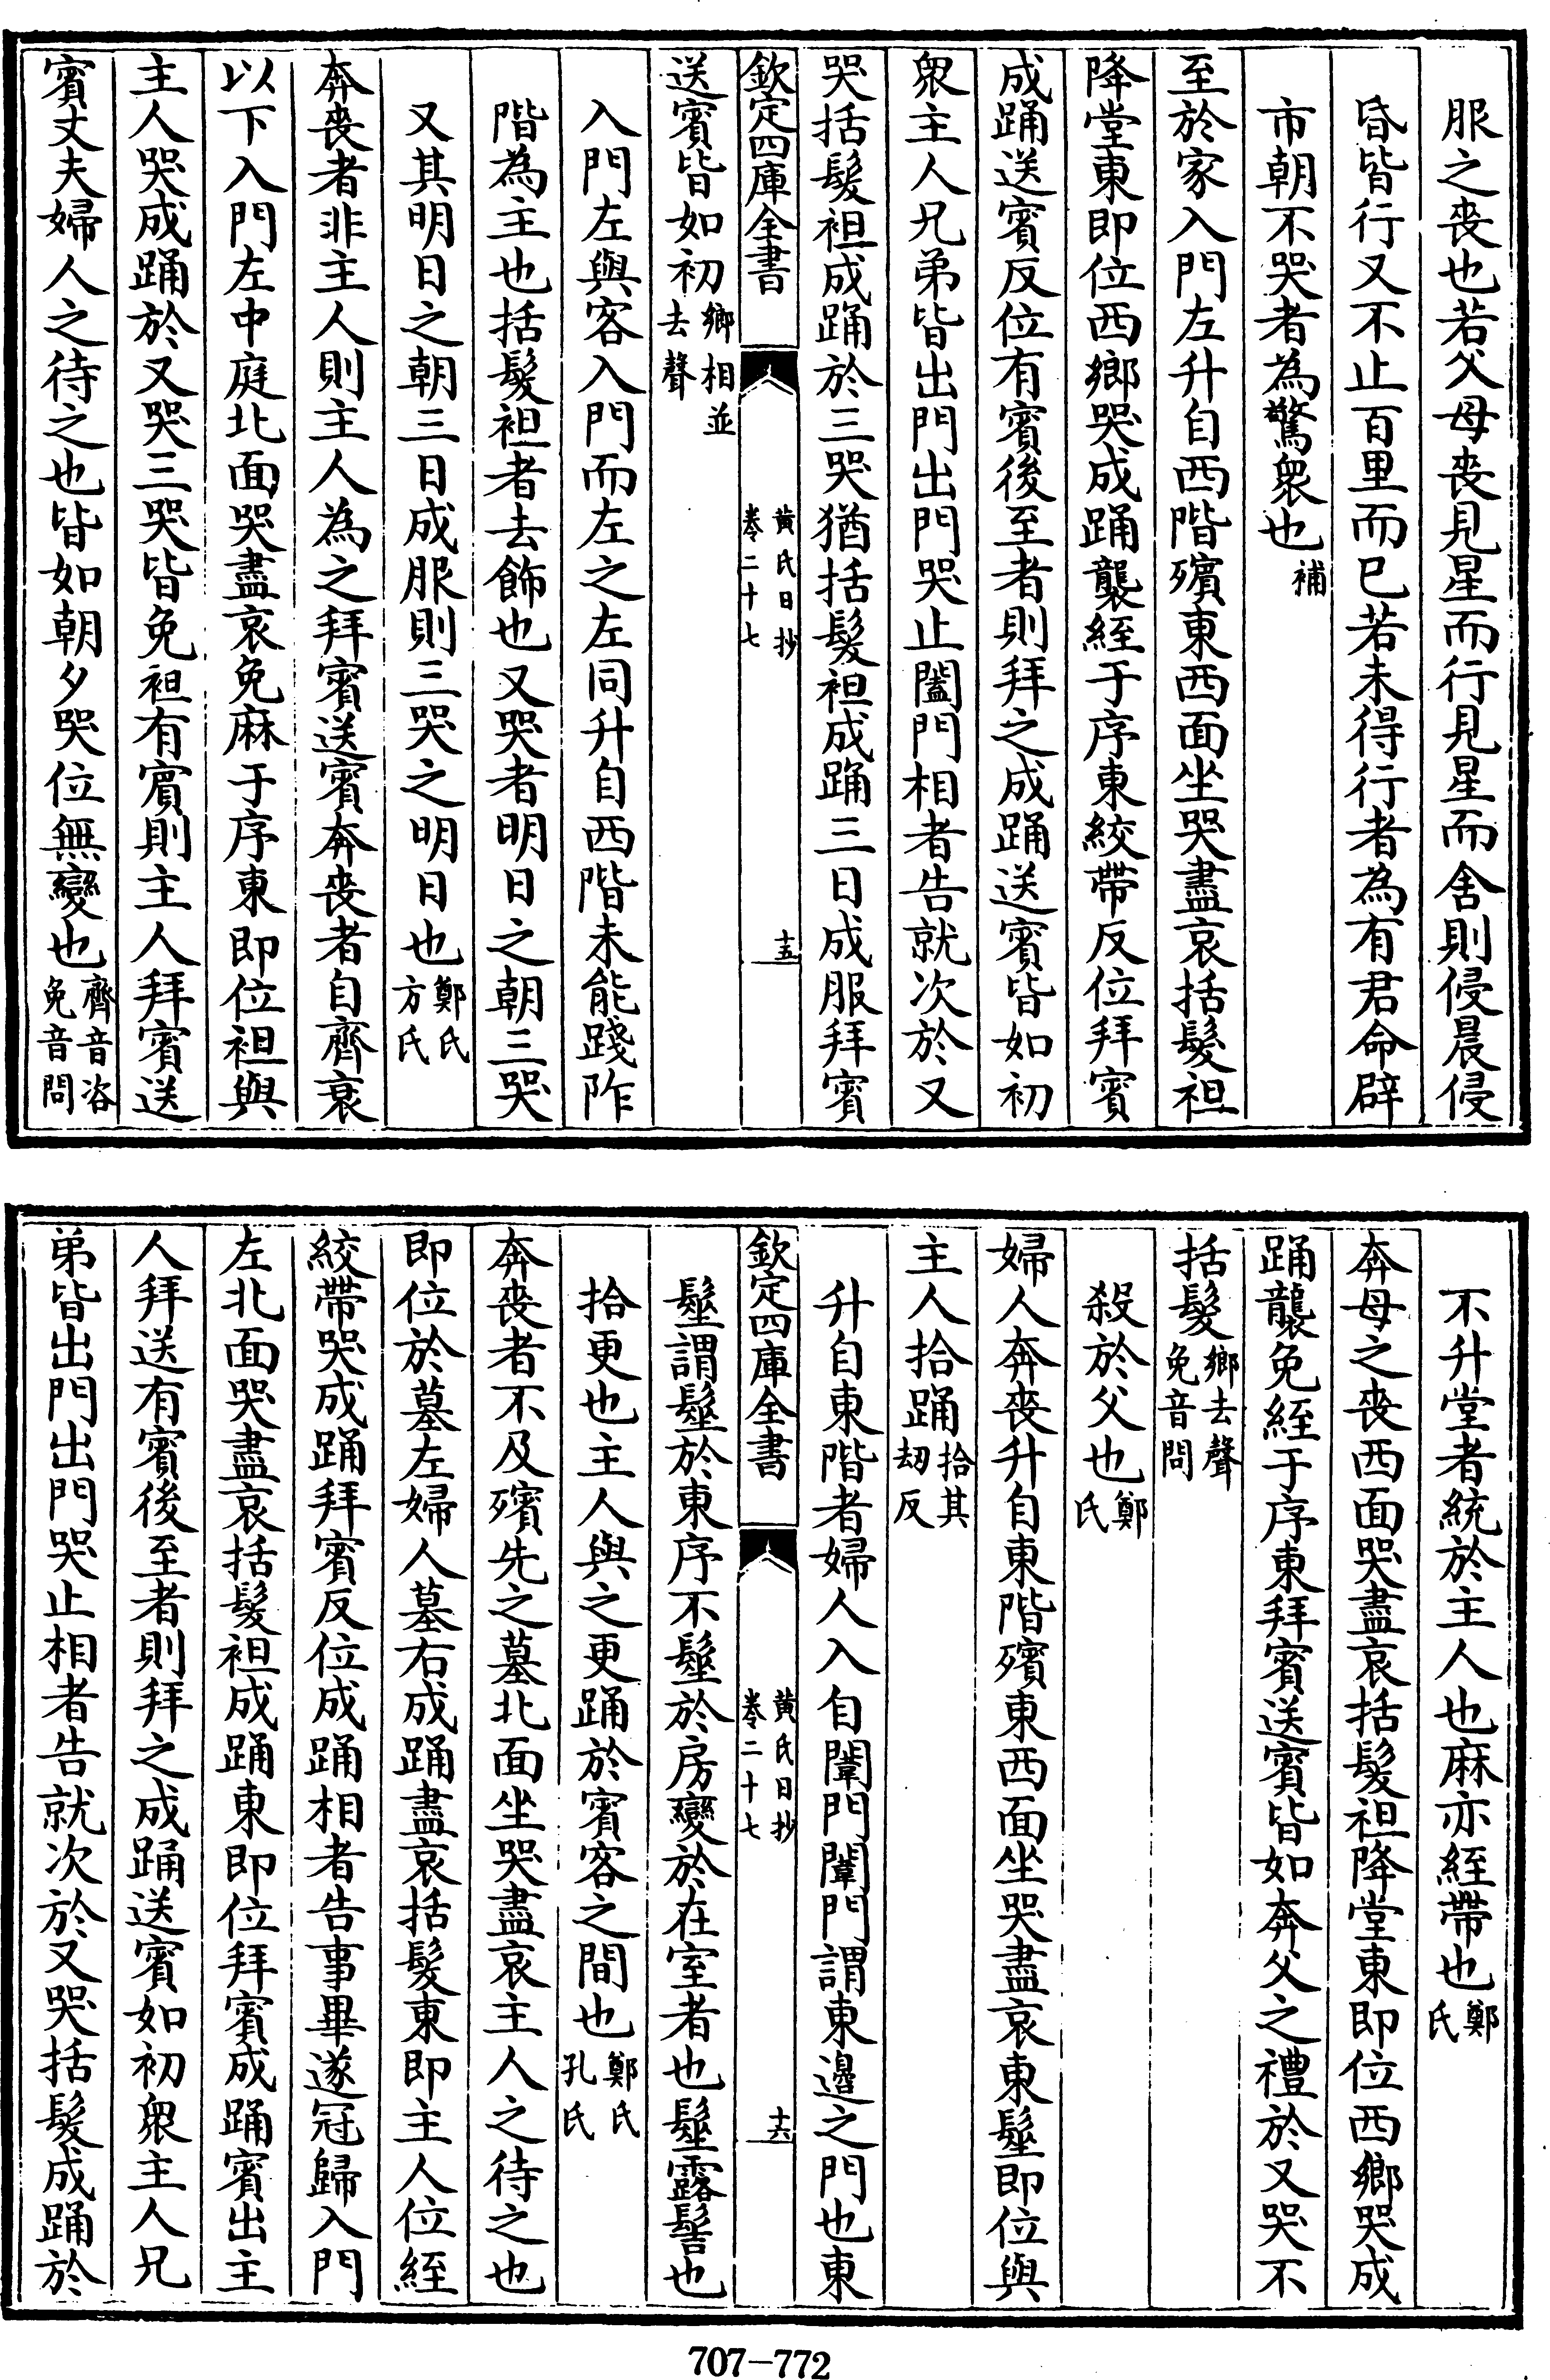 服之喪也若父母喪見星而行見星而舍則侵晨侵
昏皆行又不止百里而已若未得行者為有君命辟
市朝不哭者為驚衆也補
至於家入門左升自西階殯東西面坐哭盡哀括髪袒
降堂東即位西鄉哭成踊襲絰于序東絞帶反位拜賓
成踊送賓反位有賓後至者則拜之成踊送賓皆如初
衆主人兄弟皆出門出門哭止闔門相者告就次於又
哭括髪袒成踊於三哭猶括髪袒成踊三日成服拜賓
欽定四庫全書 黄氏日抄 卷二十七 十五
送賓皆如初鄉相並去聲
入門左與客入門而左之左同升自西階未能踐阼
階為主也括髪袒者去飾也又哭者明日之朝三哭
又其明日之朝三日成服則三哭之明日也鄭氏方氏
奔喪者非主人則主人為之拜賓送賓奔喪者自齊衰
以下入門左中庭北面哭盡哀免麻于序東即位袒與
主人哭成踊於又哭三哭皆免袒有賓則主人拜賓送
賓丈夫婦人之待之也皆如朝夕哭位無變也齊音咨免音問
不升堂者統於主人也麻亦絰帶也鄭氏
奔母之喪西面哭盡哀括髪袒降堂東即位西鄉哭成
踊襲免絰于序東拜賓送賓皆如奔父之禮於又哭不
括髪鄉去聲免音問
殺於父也鄭氏
婦人奔喪升自東階殯東西面坐哭盡哀東髽即位與
主人拾踊拾其刼反
升自東階者婦人入自闈門闈門謂東邉之門也東
欽定四庫全書 黄氏日抄 卷二十七 十六
髽謂髽於東序不髽於房變於在室者也髽露髻也
拾更也主人與之更踊於賓客之間也鄭氏孔氏
奔喪者不及殯先之墓北面坐哭盡哀主人之待之也
即位於墓左婦人墓右成踊盡哀括髪東即主人位絰
絞帶哭成踊拜賓反位成踊相者告事畢遂冠歸入門
左北面哭盡哀括髪袒成踊東即位拜賓成踊賓出主
人拜送有賓後至者則拜之成踊送賓如初衆主人兄
弟皆出門出門哭止相者告就次於又哭括髪成踊於
707-772